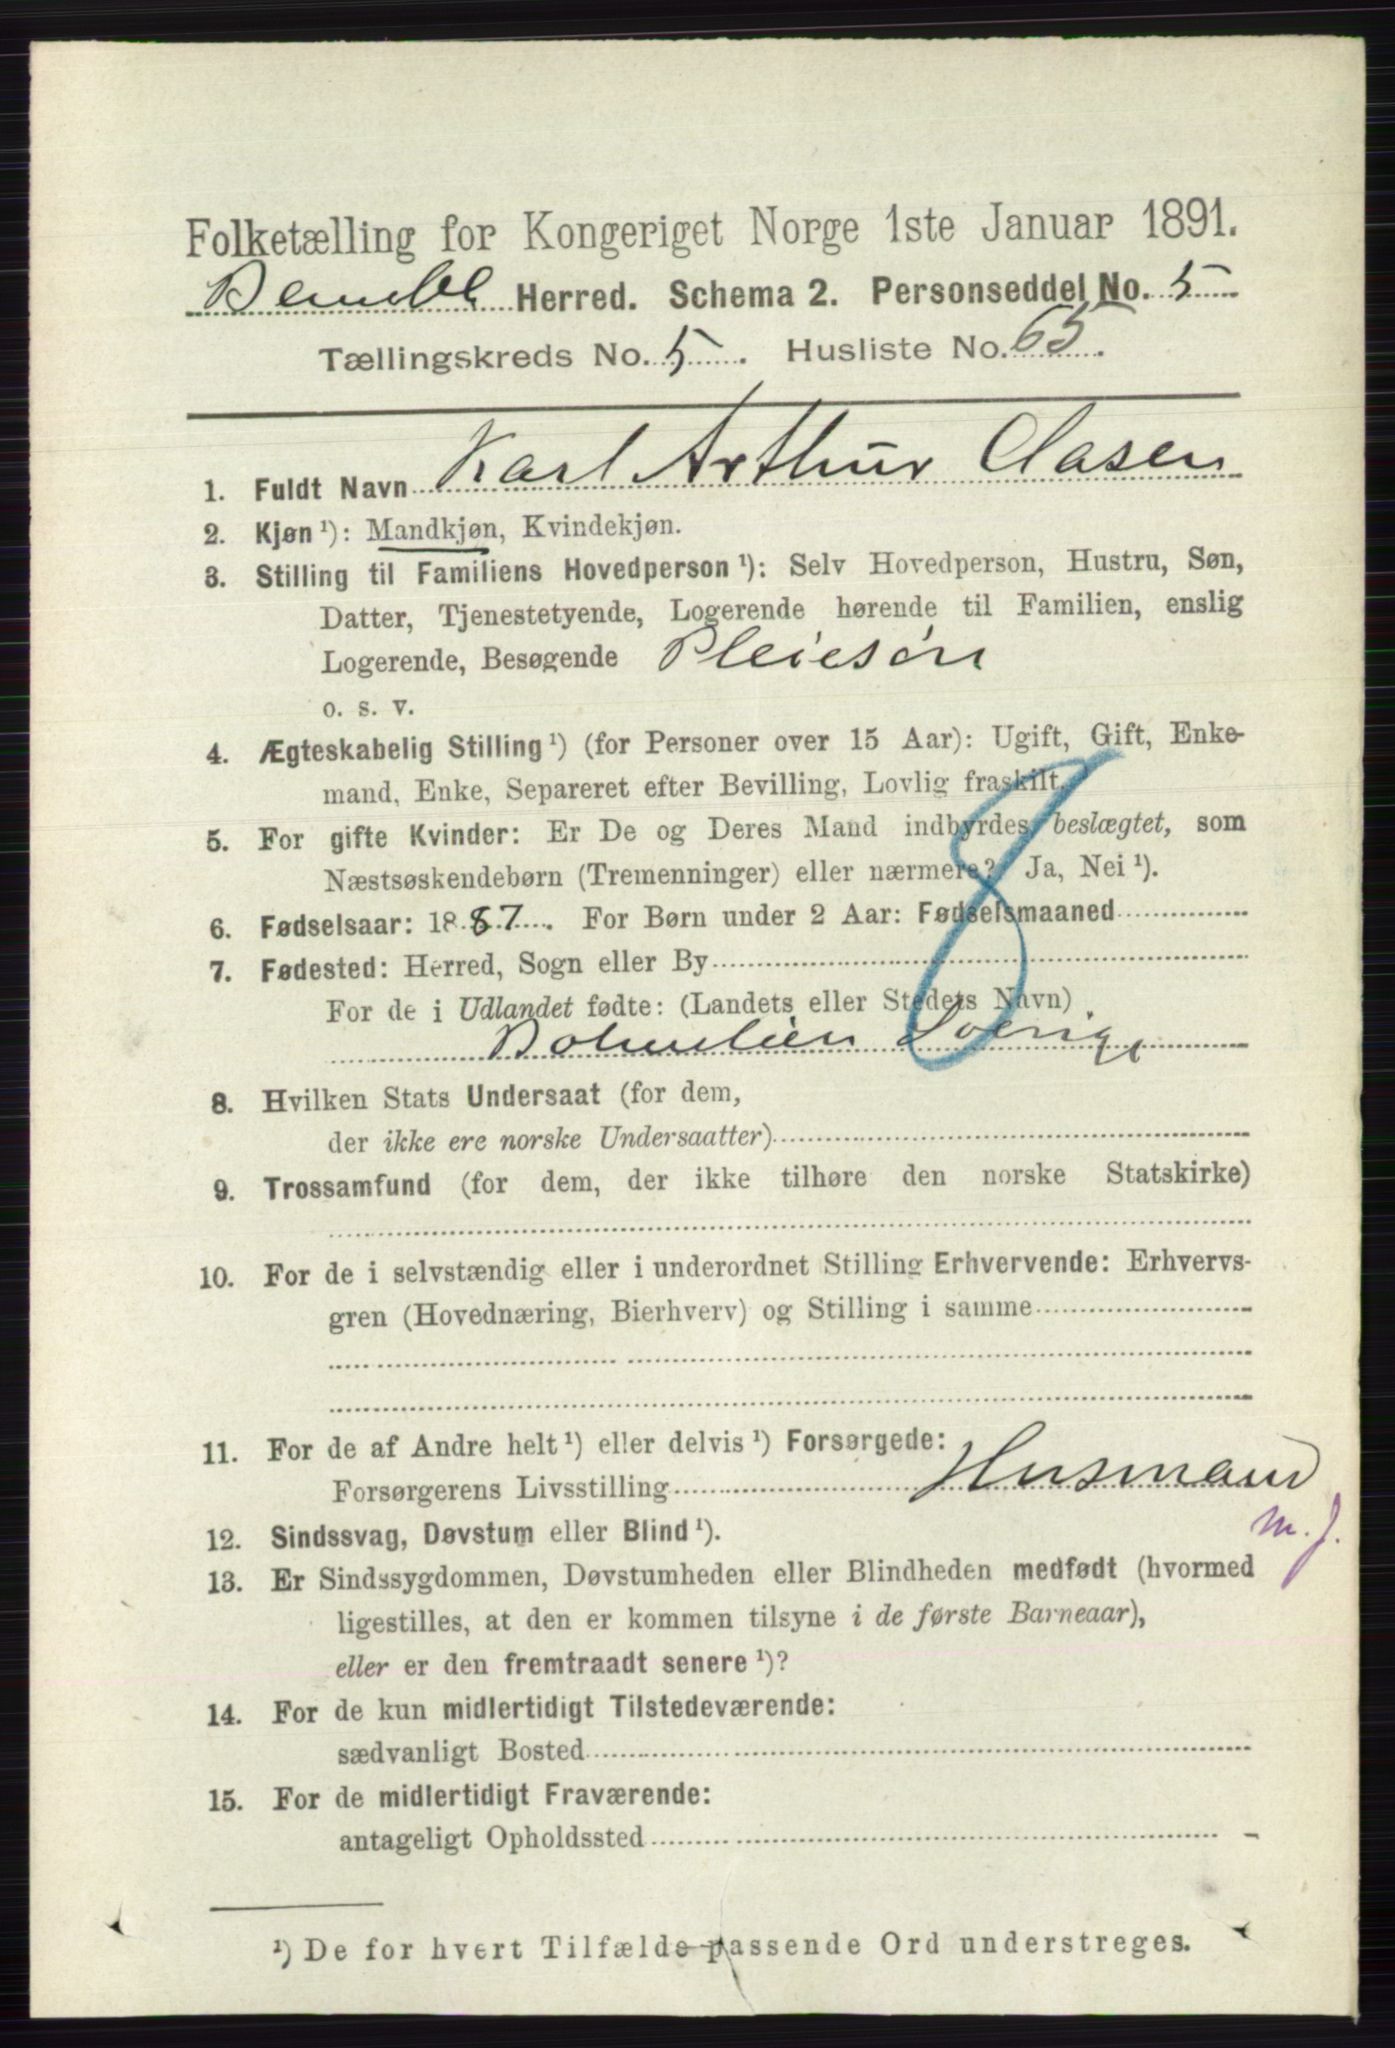 Folketælling for Kongeriget Norge 1ste Januar 1891.
Bamble Herred. Schema 2. Personseddel No. 5
Tællingskreds No. 5. Husliste No. 65.
1. Fuldt Navn Karl Arthur Clasen
2. Kjøn ¹): Mandkjøn, Kvindekjøn.
3. Stilling til Familiens Hovedperson ¹): Selv Hovedperson, Hustru, Søn,
Datter, Tjenestetyende, Logerende hørende til Familien, enslig
Logerende, Besøgende Pleiesøn
o. s. v.
4. Ægteskabelig Stilling ¹) (for Personer over 15 Aar): Ugift, Gift, Enke-
mand, Enke, Separeret efter Bevilling, Lovlig fraskilt.
5. For gifte Kvinder: Er De og Deres Mand indbyrdes beslægtet, som
Næstsøskendebørn (Tremenninger) eller nærmere? Ja, Nei ¹).
6. Fødselsaar: 1887. For Børn under 2 Aar: Fødselsmaaned
7. Fødested: Herred, Sogn eller By
For de i Udlandet fødte: (Landets eller Stedets Navn)
8
8. Hvilken Stats Undersaat (for dem,
der ikke ere norske Undersaatter)
9. Trossamfund (for dem, der ikke tilhøre den norske Statskirke)
10. For de i selvstændig eller i underordnet Stilling Erhvervende: Erhvervs-
gren (Hovednæring, Bierhverv) og Stilling i samme
11. For de af Andre helt ¹) eller delvis ¹) Forsørgede:
Forsørgerens Livsstilling Husmand
m. j.
12. Sindssvag, Døvstum eller Blind ¹).
13. Er Sindssygdommen, Døvstumheden eller Blindheden medfødt (hvormed
ligestilles, at den er kommen tilsyne i de første Barneaar),
eller er den fremtraadt senere ¹)?
14. For de kun midlertidigt Tilstedeværende:
sædvanligt Bosted
15. For de midlertidigt Fraværende:
antageligt Opholdssted
¹) De for hvert Tilfælde passende Ord understreges.